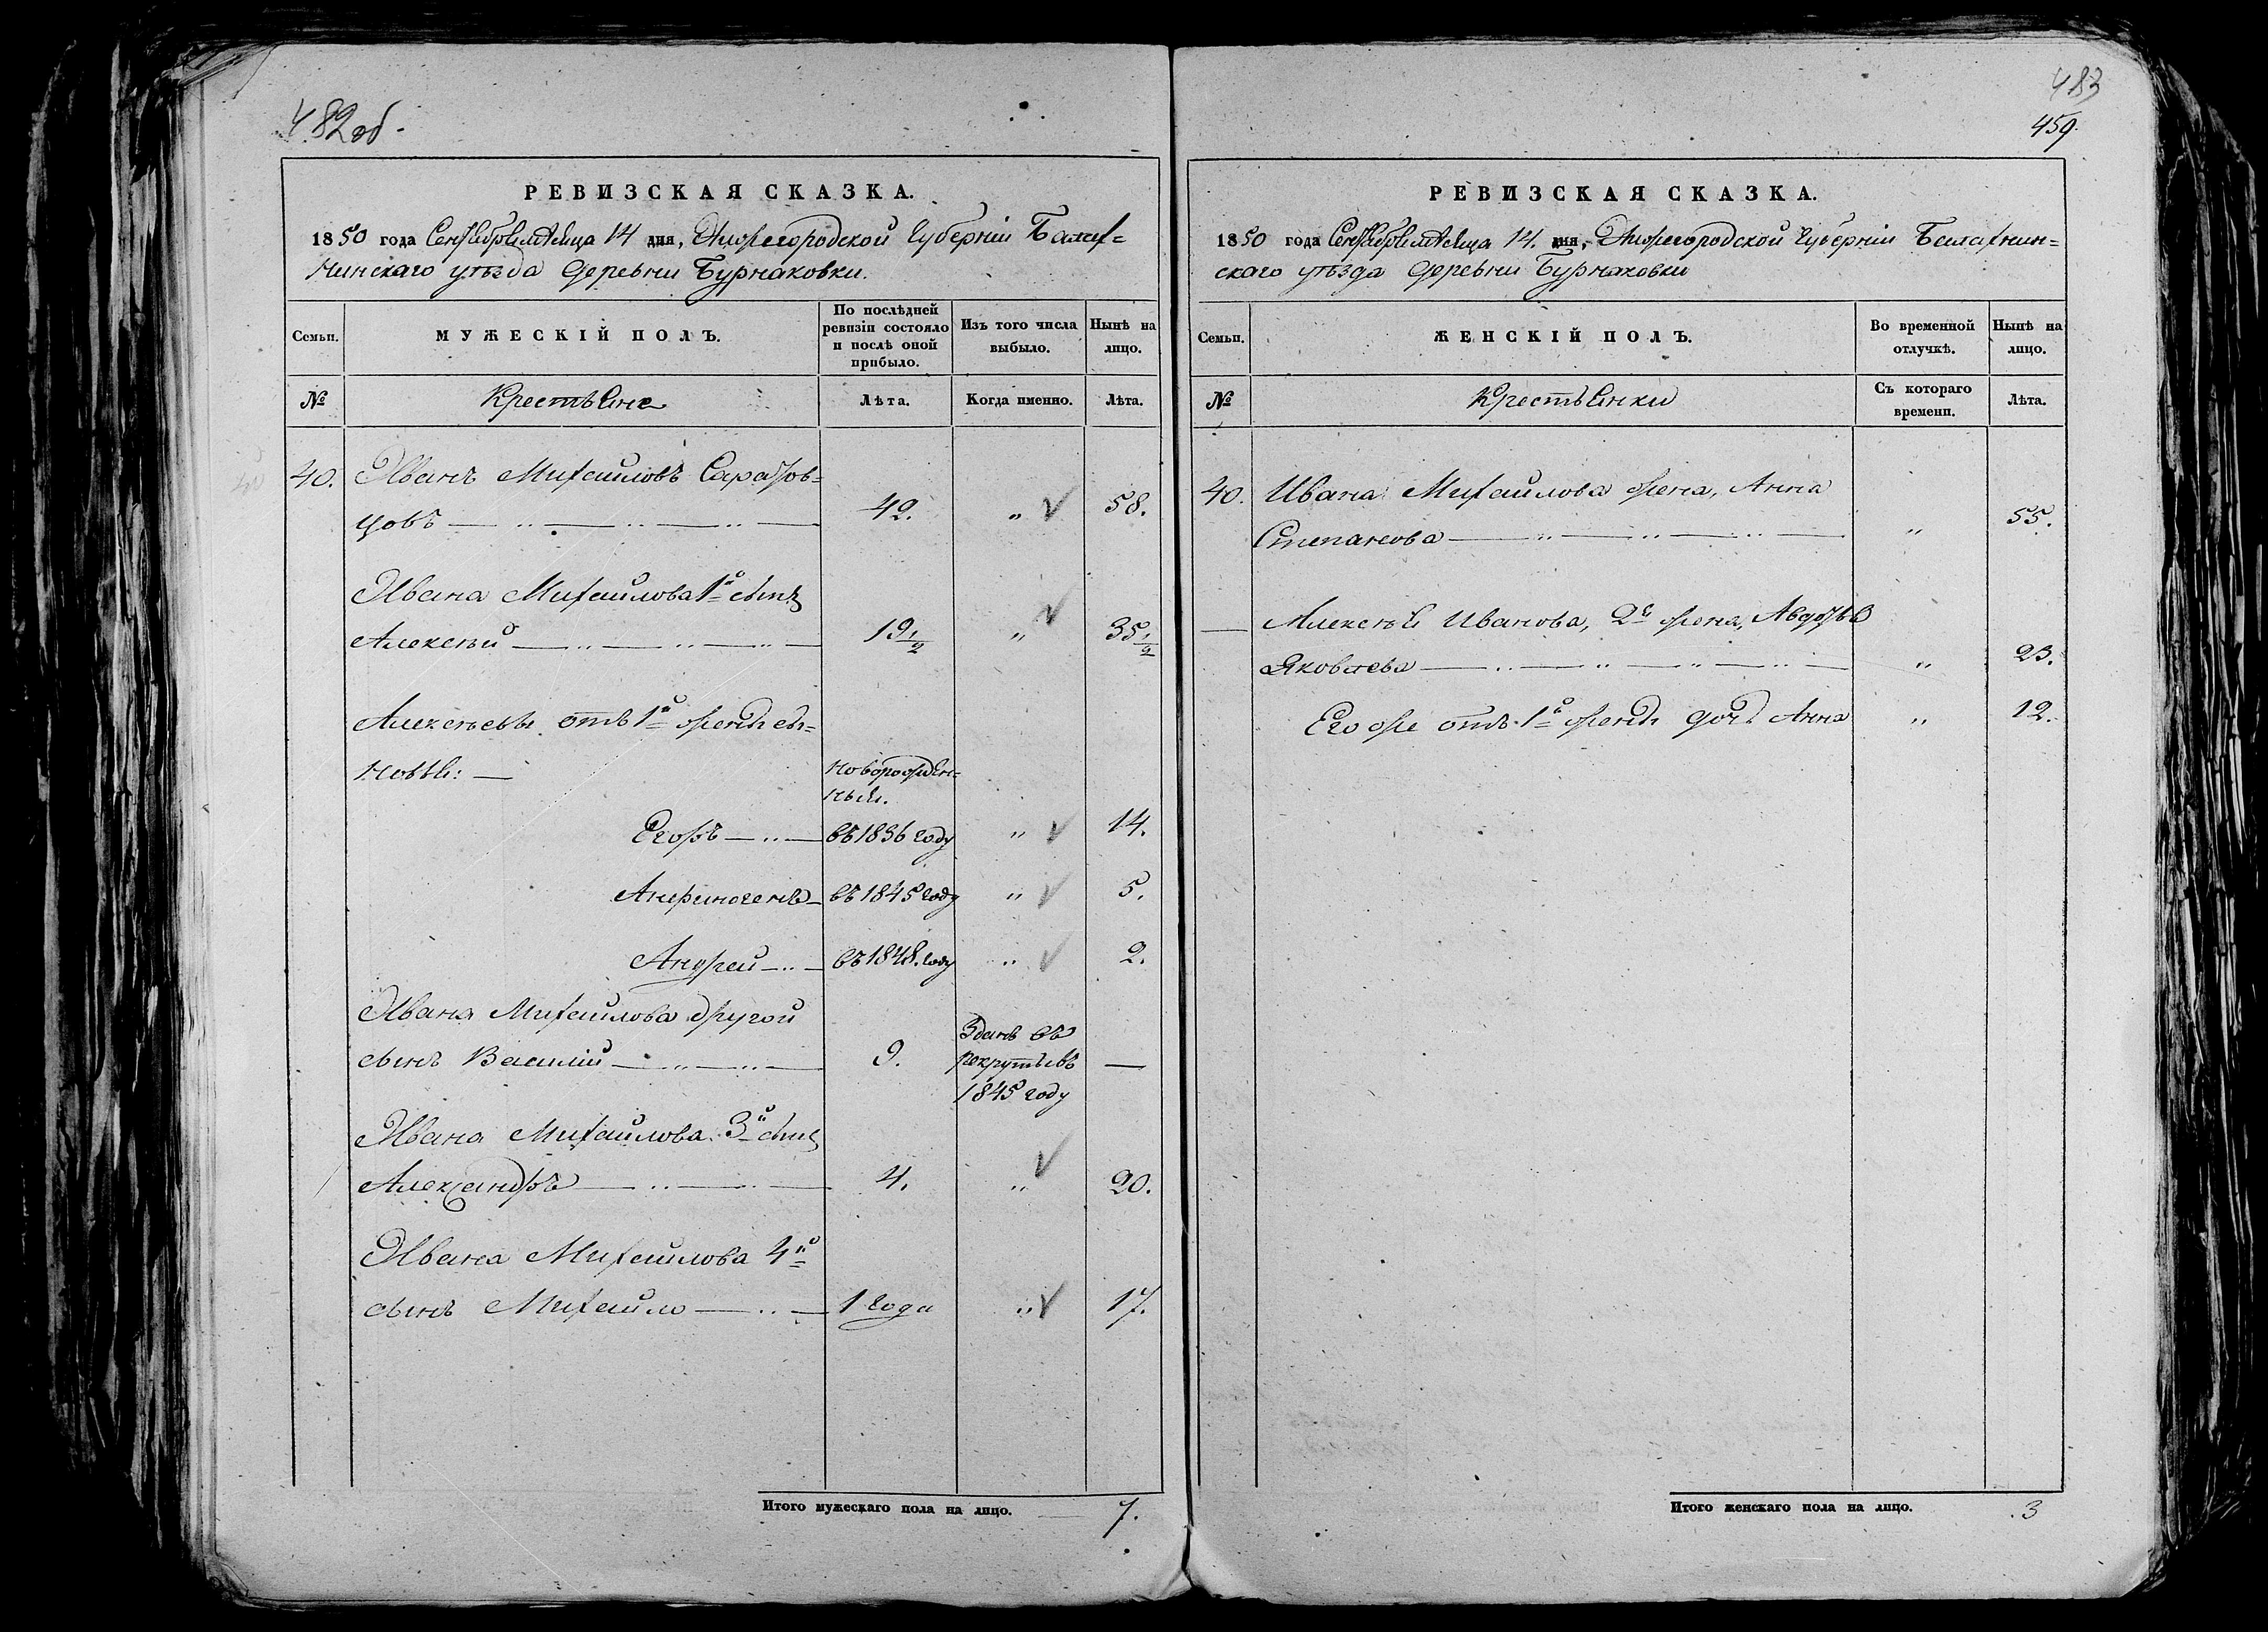 482об.
РЕВИЗСКАЯ СКАЗКА.
1850 года Сентября месяца 14 дня, Нижегородской Губерніи Балах=
нинскаго уѣзда деревни Бурнаковки.
Семьи.
МУЖЕСКІЙ ПОЛЪ.
По послѣдней
ревизіи состояло
и послѣ оной
прибыло.
Изъ того числа
выбыло.
Нынѣ на
лицо.
№
Крестьяне
Лѣта.
Когда именно.
Лѣта.
40. Иванъ Михайловъ Саратов=
цовъ 42. „ 58.
Ивана Михайлова 1й сынъ
Алексѣй 19 1/2 „ 35 1/2
Алексѣевы отъ 1й жены сы=
новья:
Новорожден=
ныя.
Егоръ въ 1836 году „ 14.
Анфиногенъ въ 1845 году „ 5.
Андрей въ 1848. году „ 2.
Ивана Михайлова другой
сынъ Василій 9. Зданъ въ
рекруты въ
1845 году —
Ивана Михайлова 3й сынъ
Александръ 4. „ 20.
Ивана Михайлова 4й
сынъ Михайло 1 года „ 17.
Итого мужескаго пола на лицо. 7.
483
459.
РЕВИЗСКАЯ СКАЗКА.
1850 года Сентября месяца 14. дня, Нижегородской Губерніи Балахнин=
скаго уѣзда деревни Бурнаковки
Семьи.
ЖЕНСКІЙ ПОЛЪ.
Во временной
отлучкѣ.
Нынѣ на
лицо.
№
Крестьянки
Съ котораго
времени.
Лѣта.
40. Ивана Михайлова жена, Анна
Степанова „ 55.
Алексѣя Иванова, 2я жена, Авдотья
Яковлева „ 23.
Его же отъ 1й жены дочь Анна „ 12.
Итого женскаго пола на лицо. 3